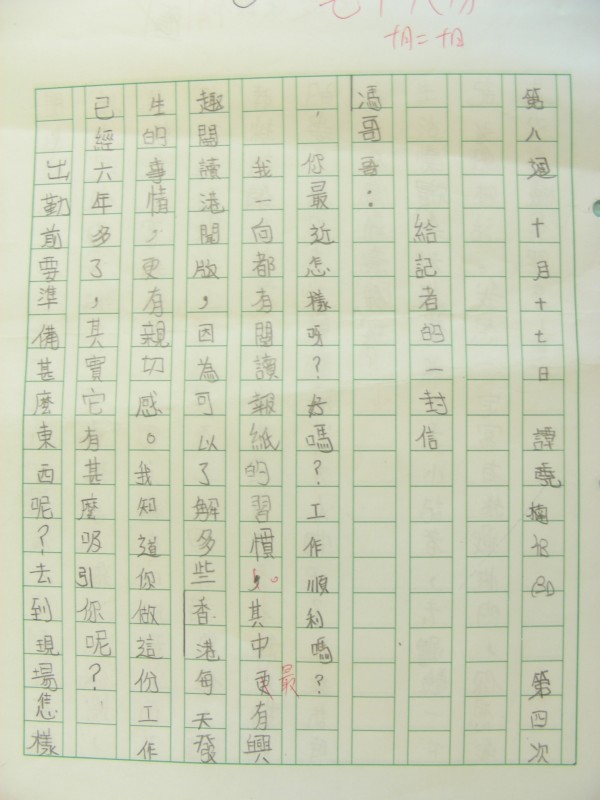 十月二十日
第八週 十月十七日 譚堯 第四次
給記者的一封信
馮哥哥：
你最近怎樣呀？好嗎？工作順利嗎？
我一向都有閱讀報紙的習慣。其中更最有興
趣閱讀港聞版，因為可以了解多些香港每天發
生的事情，更有親切感。我知道你做這份工作
已經六年多了，其實它有甚麼吸引你呢？
出勤前要準備甚麼東西呢？去到現場怎樣